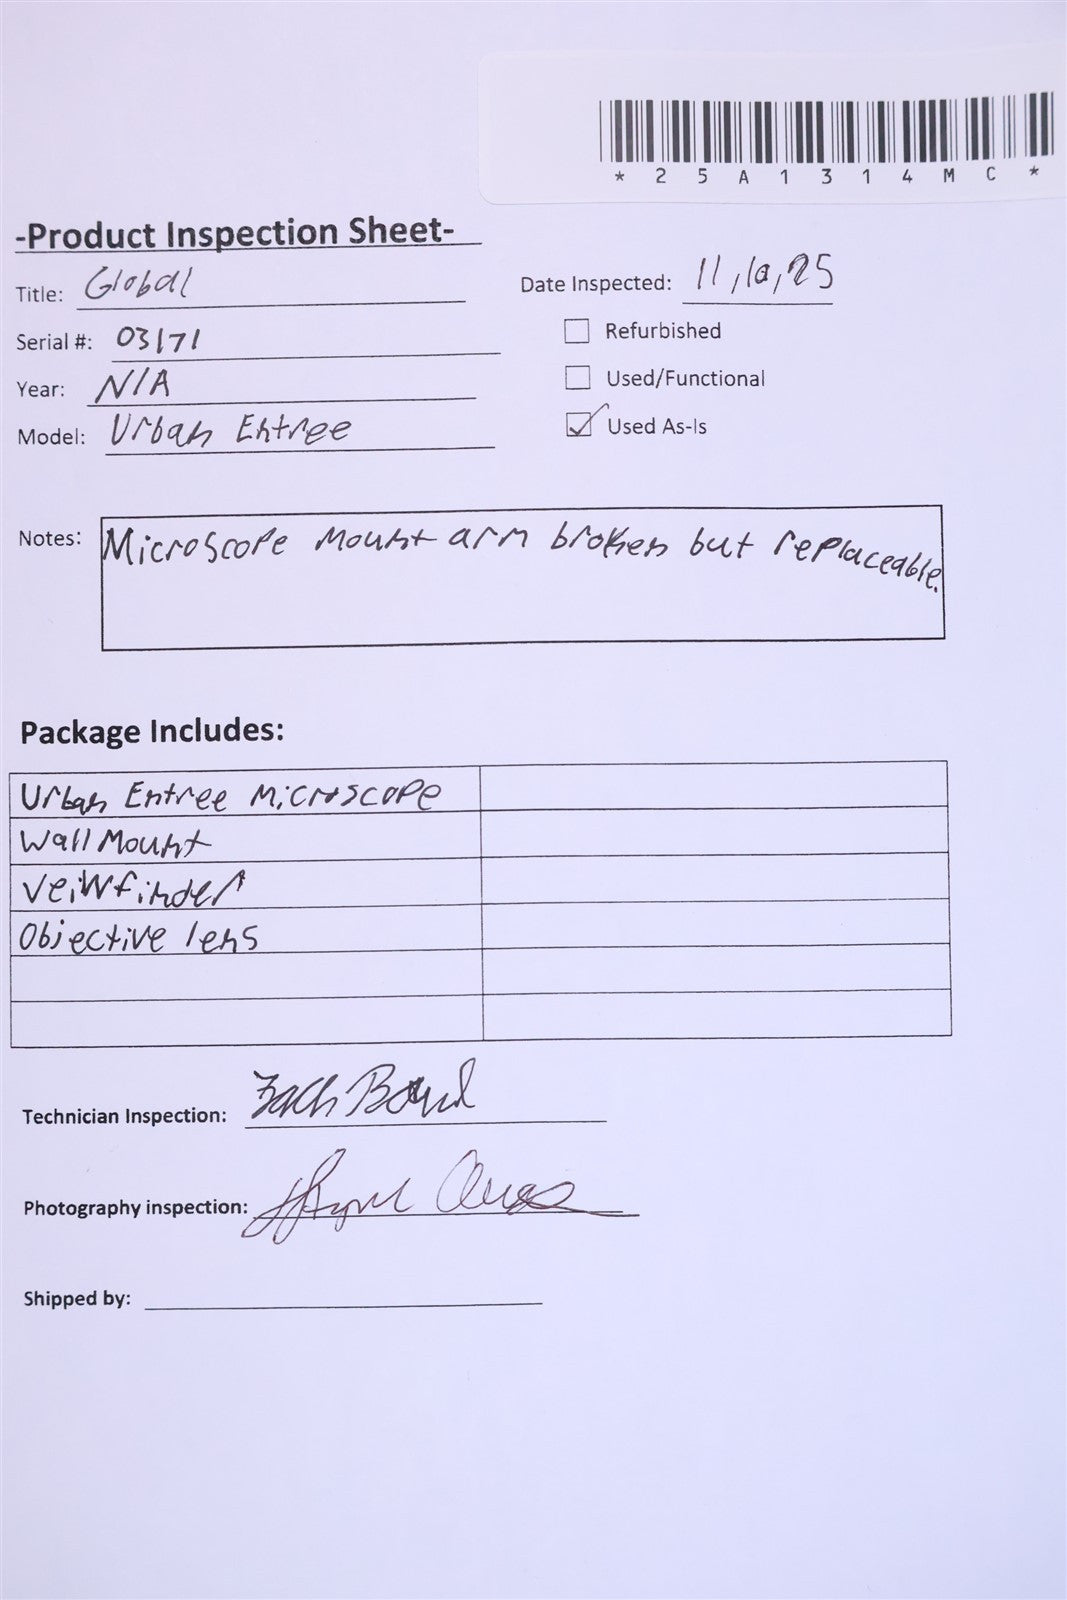 *25A1314MC*
-Product Inspection Sheet-
Title: Global
Date Inspected: 11,10,25
Serial #: 03171
Refurbished
Year: N/A
Used/Functional
Model: Urban Entree
Used As-Is
Notes: Microscope Mount arm broken but replaceable.
Package Includes:
Urban Entree Microscope
Wall Mount
Veiwfinder
Objective lens
Technician Inspection: Zach
Photography inspection:
Shipped by: